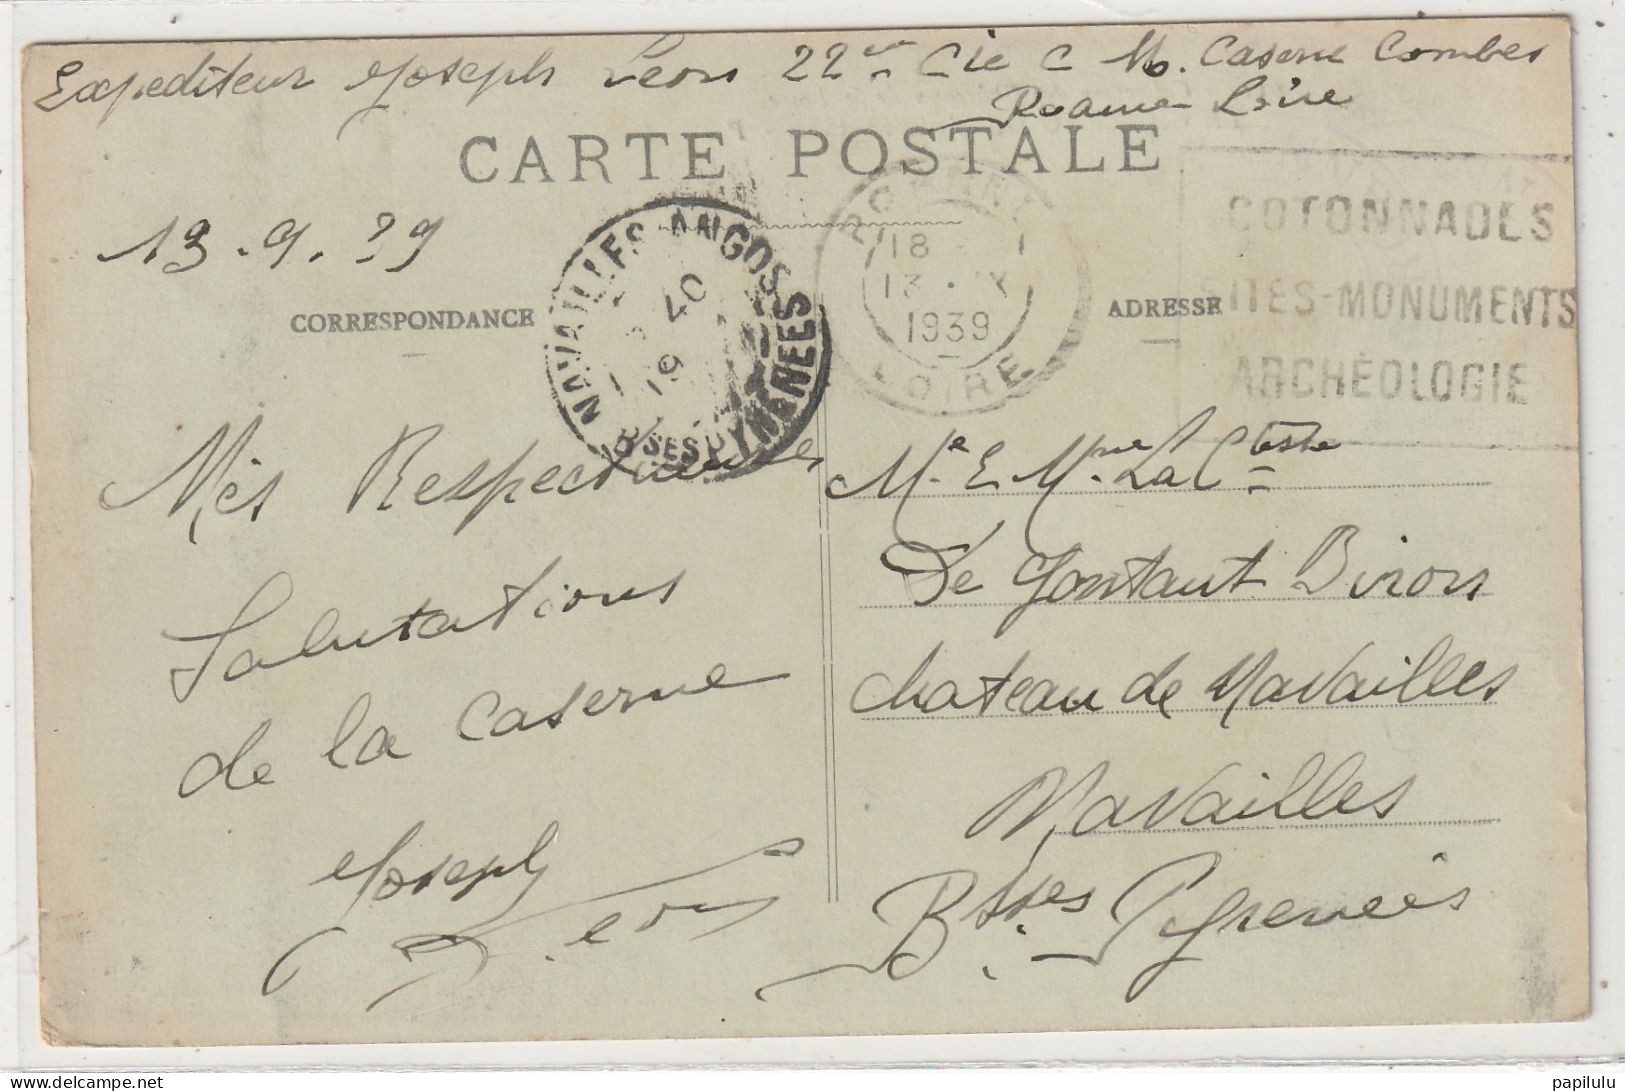 Expediteur Joseph Léon 22 eme Cie C M. Caserne Combes
Roanne Loire
CARTE POSTALE
13.9.39
NAVAILLES-ANGOS
19 40
BSES PYRENEES
ROANNE
18
13 IX
1939
LOIRE
COTONNADES
SITES-MONUMENTS
ARCHÉOLOGIE
CORRESPONDANCE
ADRESSE
Mes Respectueuses
Salutations
de la Caserne
Joseph
Léon
Mr E Mme La Ctesse
De Gontaut Biron
chateau de Navailles
Navailles
Bsses Pyrenées
papilulu